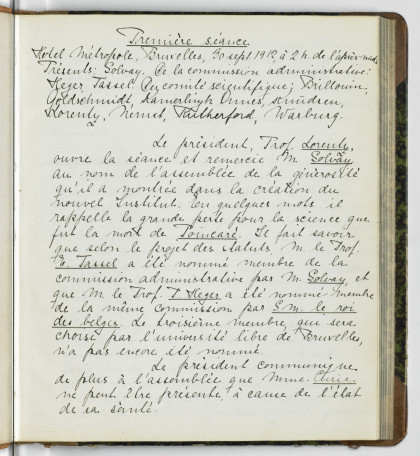 Première séance
Hotel Métropole, Bruxelles, 30 sept. 1912, à 2 h. de l'après-mid.
Présents: Solvay. De la commission administrative:
Heger, Tassel. Du comité scientifique; Brillouin,
Goldschmidt, Kamerlingh Onnes, Knudsen,
Lorentz, Nernst, Rutherford, Warburg.
Le président, Prof. Lorentz,
ouvre la séance et remercie M. Solvay
au nom de l'assemblée de la générosité
qu'il a montrée dans la création du
nouvel Institut. En quelques mots il
rappelle la grande perte pour la science que
fut la mort de Poincaré. Il fait savoir
que selon le projet des statuts M. le Prof.
E. Tassel a été nommé membre de la
commission administrative par M. Solvay, et
que M. le Prof. P. Heger a été nommé membre
de la même commission par S.M. le roi
des belges. Le troisième membre, qui sera
choisi par l'université libre de Bruxelles,
n'a pas encore été nommé.
Le président communique
de plus à l'assemblée que Mme. Curie
ne peut être présente, à cause de l'état
de sa santé.